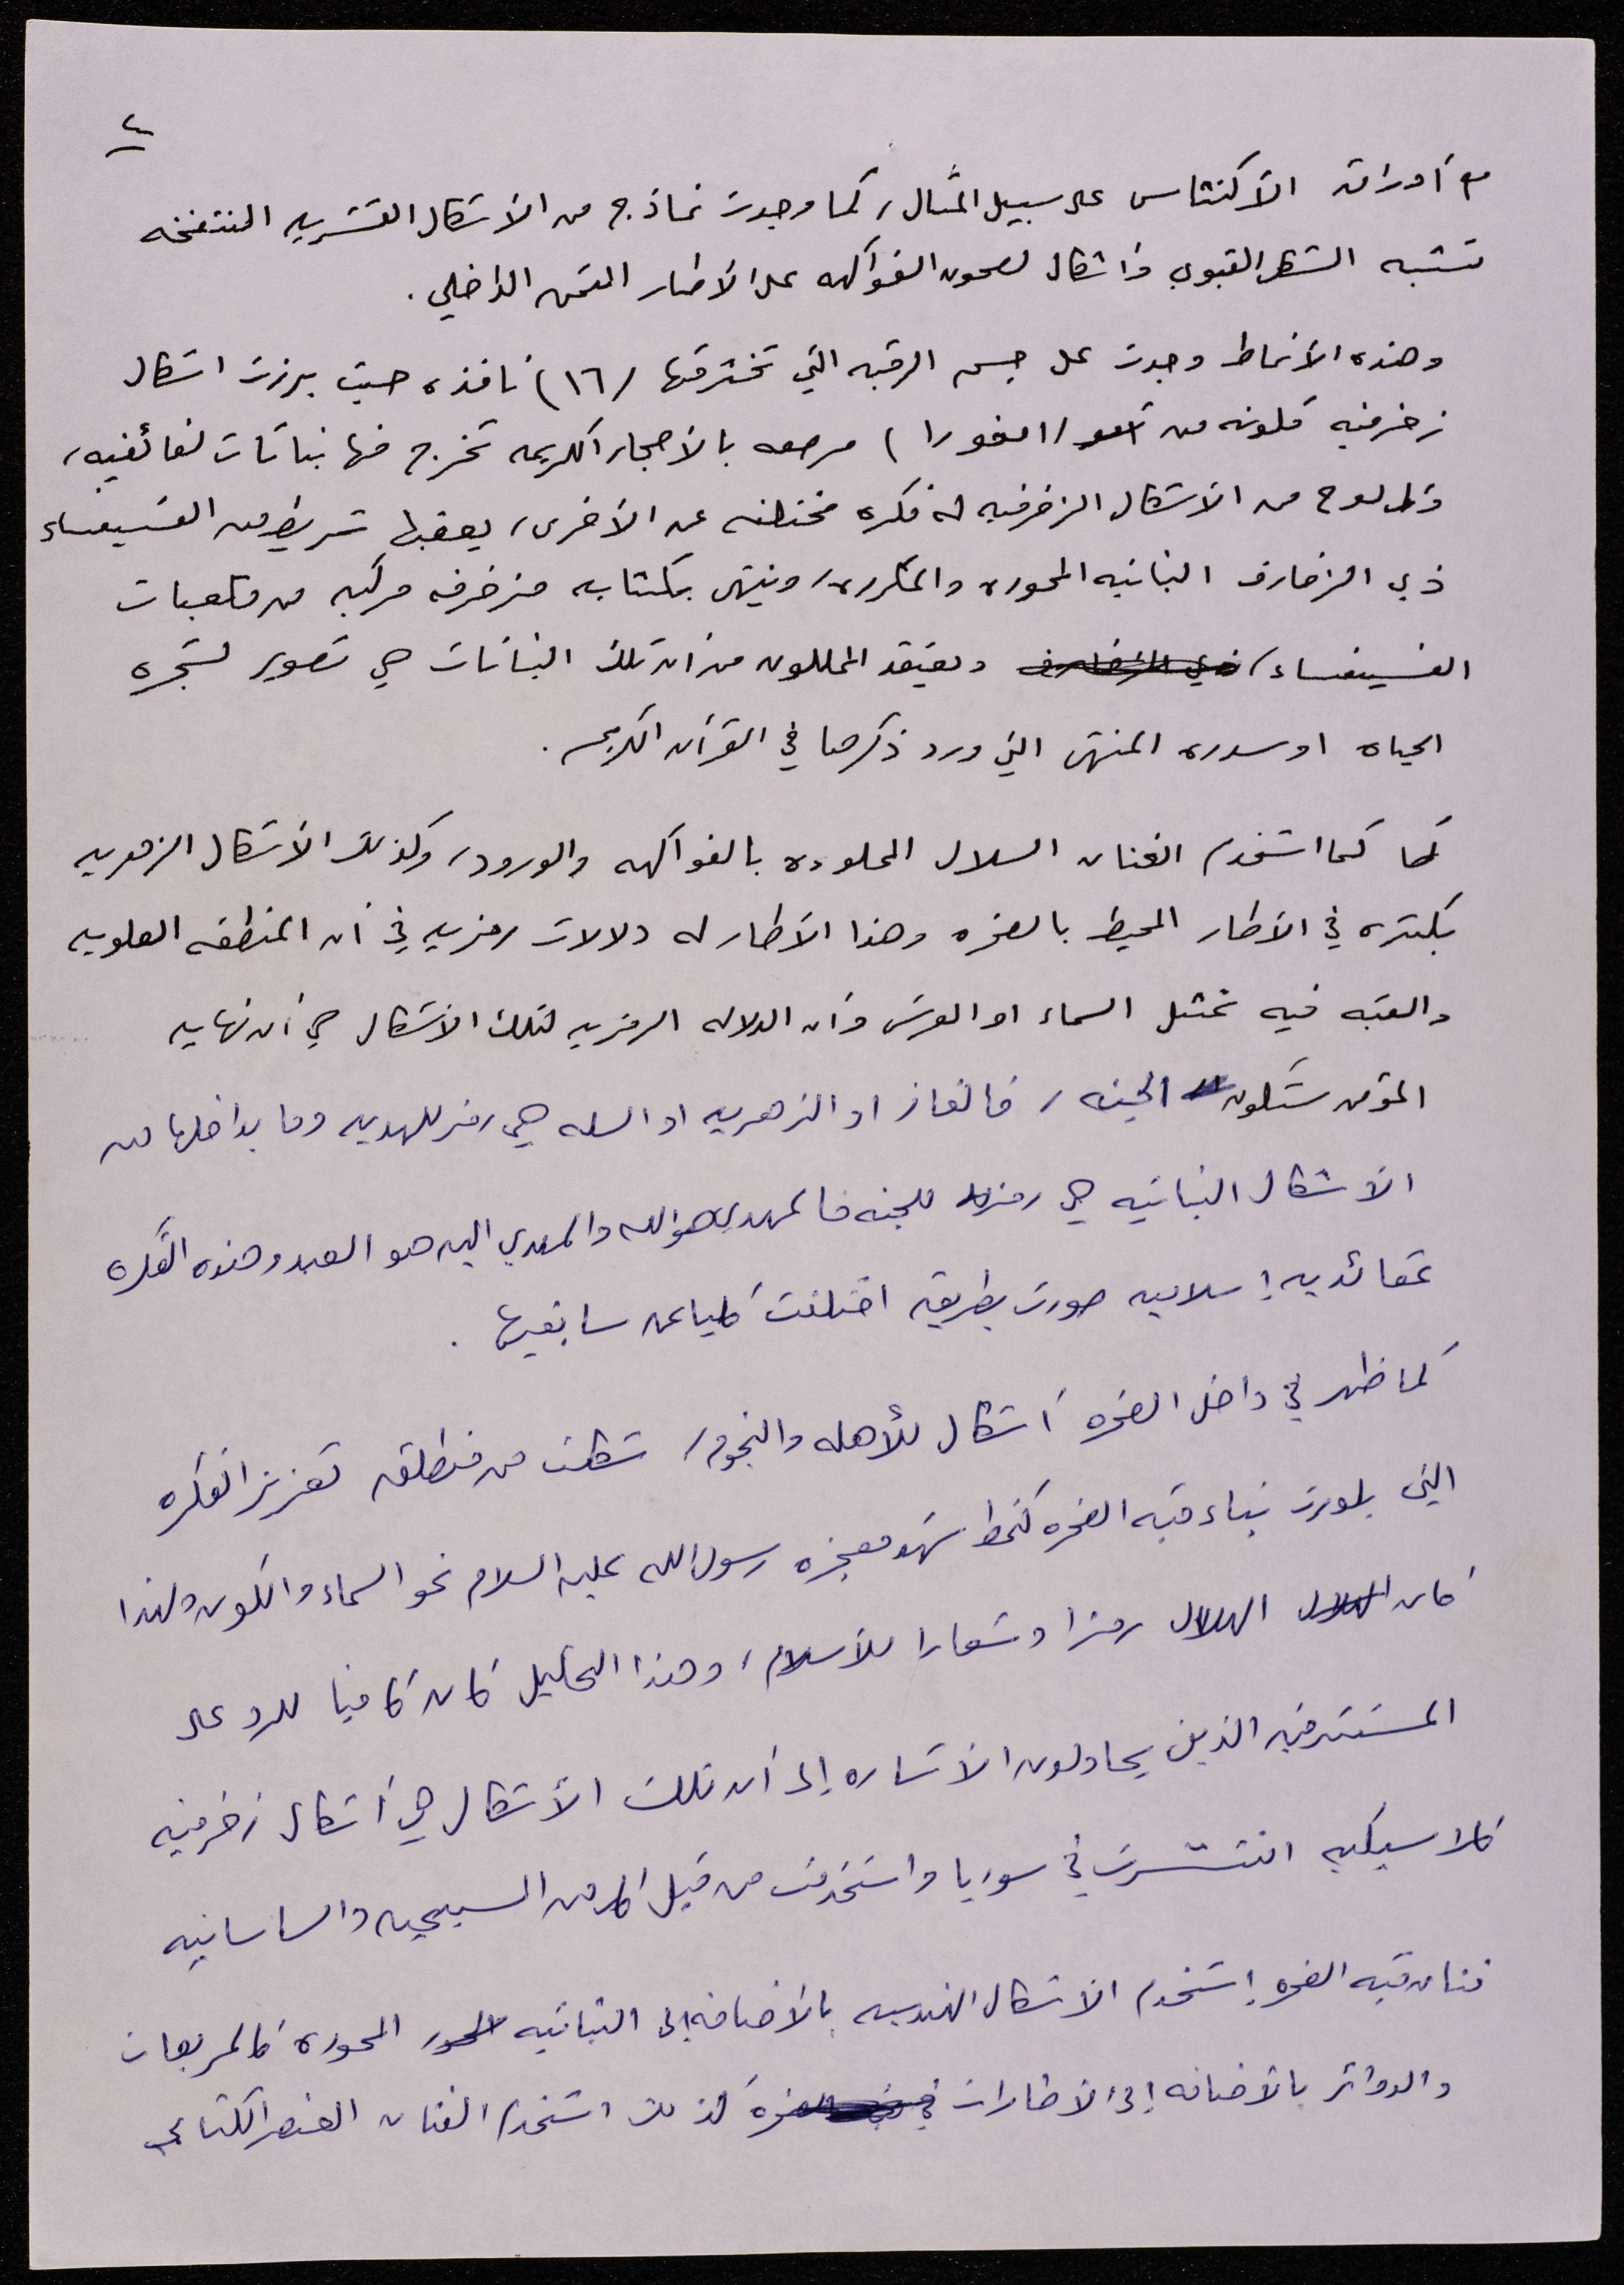 ٤
مع أوراق الأكنثاس على سبيل المثال، كما وجدت نماذج من الأشكال القشريه المنتفخه
تشبه الشكل القبوي وأشكال لصحون الفواكه على الأطار المثمن الداخلي.
وهذه الأنماط وجدت على جسم الرقبه التي تخترقها (١٦) نافذه حيث برزت اشكال
زخرفيه مكونه من (امفورا) مرصعه بالأحجار الكريمه تخرج منها نباتات لفائفيه،
وكل لوح من الأشكال الزخرفيه له فكره مختلفه عن الأخرى، يعقبها شريط من الفسيفساء
ذي الزخارف النباتيه المحوره والمكرره، وينتهي بكتابه مزخرفه مركبه من مكعبات
الفسيفساء، ذي الزخارف ويعتقد المحللون من ان تلك النباتات هي تصوير لشجره
الحياه او سدره المنتهى التي ورد ذكرها في القرآن الكريم.
كما كما استخدم الفنان السلال المملوءه بالفواكه والورود، وكذلك الأشكال الزهريه
بكثره في الأطار المحيط بالصخره وهذا الأطار له دلالات رمزيه في أن المنطقه العلويه
والقبه فيه تمثل السماء او العرش وأن الدلاله الرمزيه لتلك الأشكال هي أن نهايه
المؤمن ستكون الجنه، فالفاز او الزهريه او السله هي رمز للهديه وما بداخلها من
الأشكال النباتيه هي رمز للجنه فالمهدي هو الله والمهدي اليه هو العبد وهذه الفكره
عقائديه إسلاميه صورت بطريقه اختلفت كليا عن سابقيها.
كما ظهر في داخل الصخره أشكال للأهله والنجوم، شكلت من منطلق تعزيز الفكره
التي بلورت بناء قبه الصخره كنمط شهد معجزه رسول الله عليه السلام نحو السماء والكون ولهذا
كان الهلال الهلال رمزا وشعارا للأسلام، وهذا التحليل كان كافيا للرد على
المستشرقين الذين يحاولون الأشاره إلى أن تلك الأشكال هي أشكال زخرفيه
كلاسيكيه انتشرت في سوريا واستخدمت من قبل كل من المسيحيه والساسانيه
فنان قبه الصخره إستخدم الأشكال الهندسيه بالأضافه إلى النباتيه المحور المحوره كالمربعات
والدوائر بالأضافه إلى الأطارات كذلك استخدم الفنان العنصر الكتابي